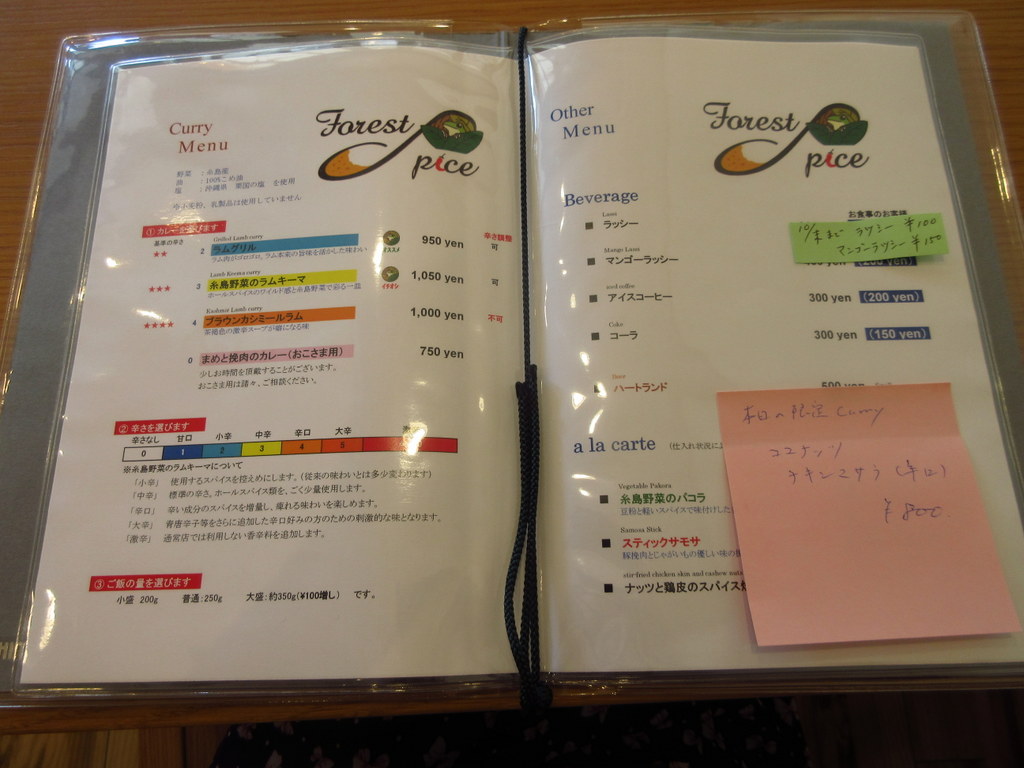 Curry
Menu
Forest
Spice
野菜 ：糸島産
油 ：100%こめ油
塩 ：沖縄県 粟国の塩 を使用
※小麦粉、乳製品は使用していません
①カレーを選びます
基準の辛さ
辛さ調整
Grilled Lamb curry
★★ 2 ラムグリル オススメ 950 yen 可
Lamb Keema curry
★★★ 3 糸島野菜のラムキーマ イチオシ 1,050 yen 可
ホールスパイスのワイルド感と糸島野菜で彩る一皿
Kashmir Lamb curry
★★★★ 4 ブラウンカシミールラム 1,000 yen 不可
茶褐色の激辛スープが癖になる味
0 まめと挽肉のカレー（おこさま用） 750 yen
少しお時間を頂戴することがございます。
おこさま用は諸々、ご相談ください。
②辛さを選びます
辛さなし 甘口 小辛 中辛 辛口 大辛
0 1 2 3 4 5
※糸島野菜のラムキーマについて
「小辛」 使用するスパイスを控えめにします。（従来の味わいとは多少変わります）
「中辛」 標準の辛さ。ホールスパイス類を、ごく少量使用します。
「辛口」 辛い成分のスパイスを増量し、痺れる味わいを楽しめます。
「大辛」 青唐辛子等をさらに追加した辛口好みの方のための刺激的な味となります。
「激辛」 通常店では利用しない香辛料を追加します。
③ご飯の量を選びます
小盛 200g 普通：250g 大盛：約350g（¥100増し） です。
Other
Menu
Forest
Spice
Beverage
お食事のお客様
Lassi
■ ラッシー
10/末まで ラッシー ¥100
マンゴーラッシー ¥150
Mango Lassi
■ マンゴーラッシー
iced coffee
■ アイスコーヒー 300 yen （200 yen）
Coke
■ コーラ 300 yen （150 yen）
Beer
■ ハートランド 500 yen
a la carte （仕入れ状況によ
Vegetable Pakora
■ 糸島野菜のパコラ
豆粉と軽いスパイスで味付けした
Samosa Stick
■ スティックサモサ
豚挽肉とじゃがいもの優しい味の
stir-fried chicken skin and cashew nuts
■ ナッツと鶏皮のスパイス
本日の限定 Curry
ココナッツ
チキンマサラ（辛口）
¥800